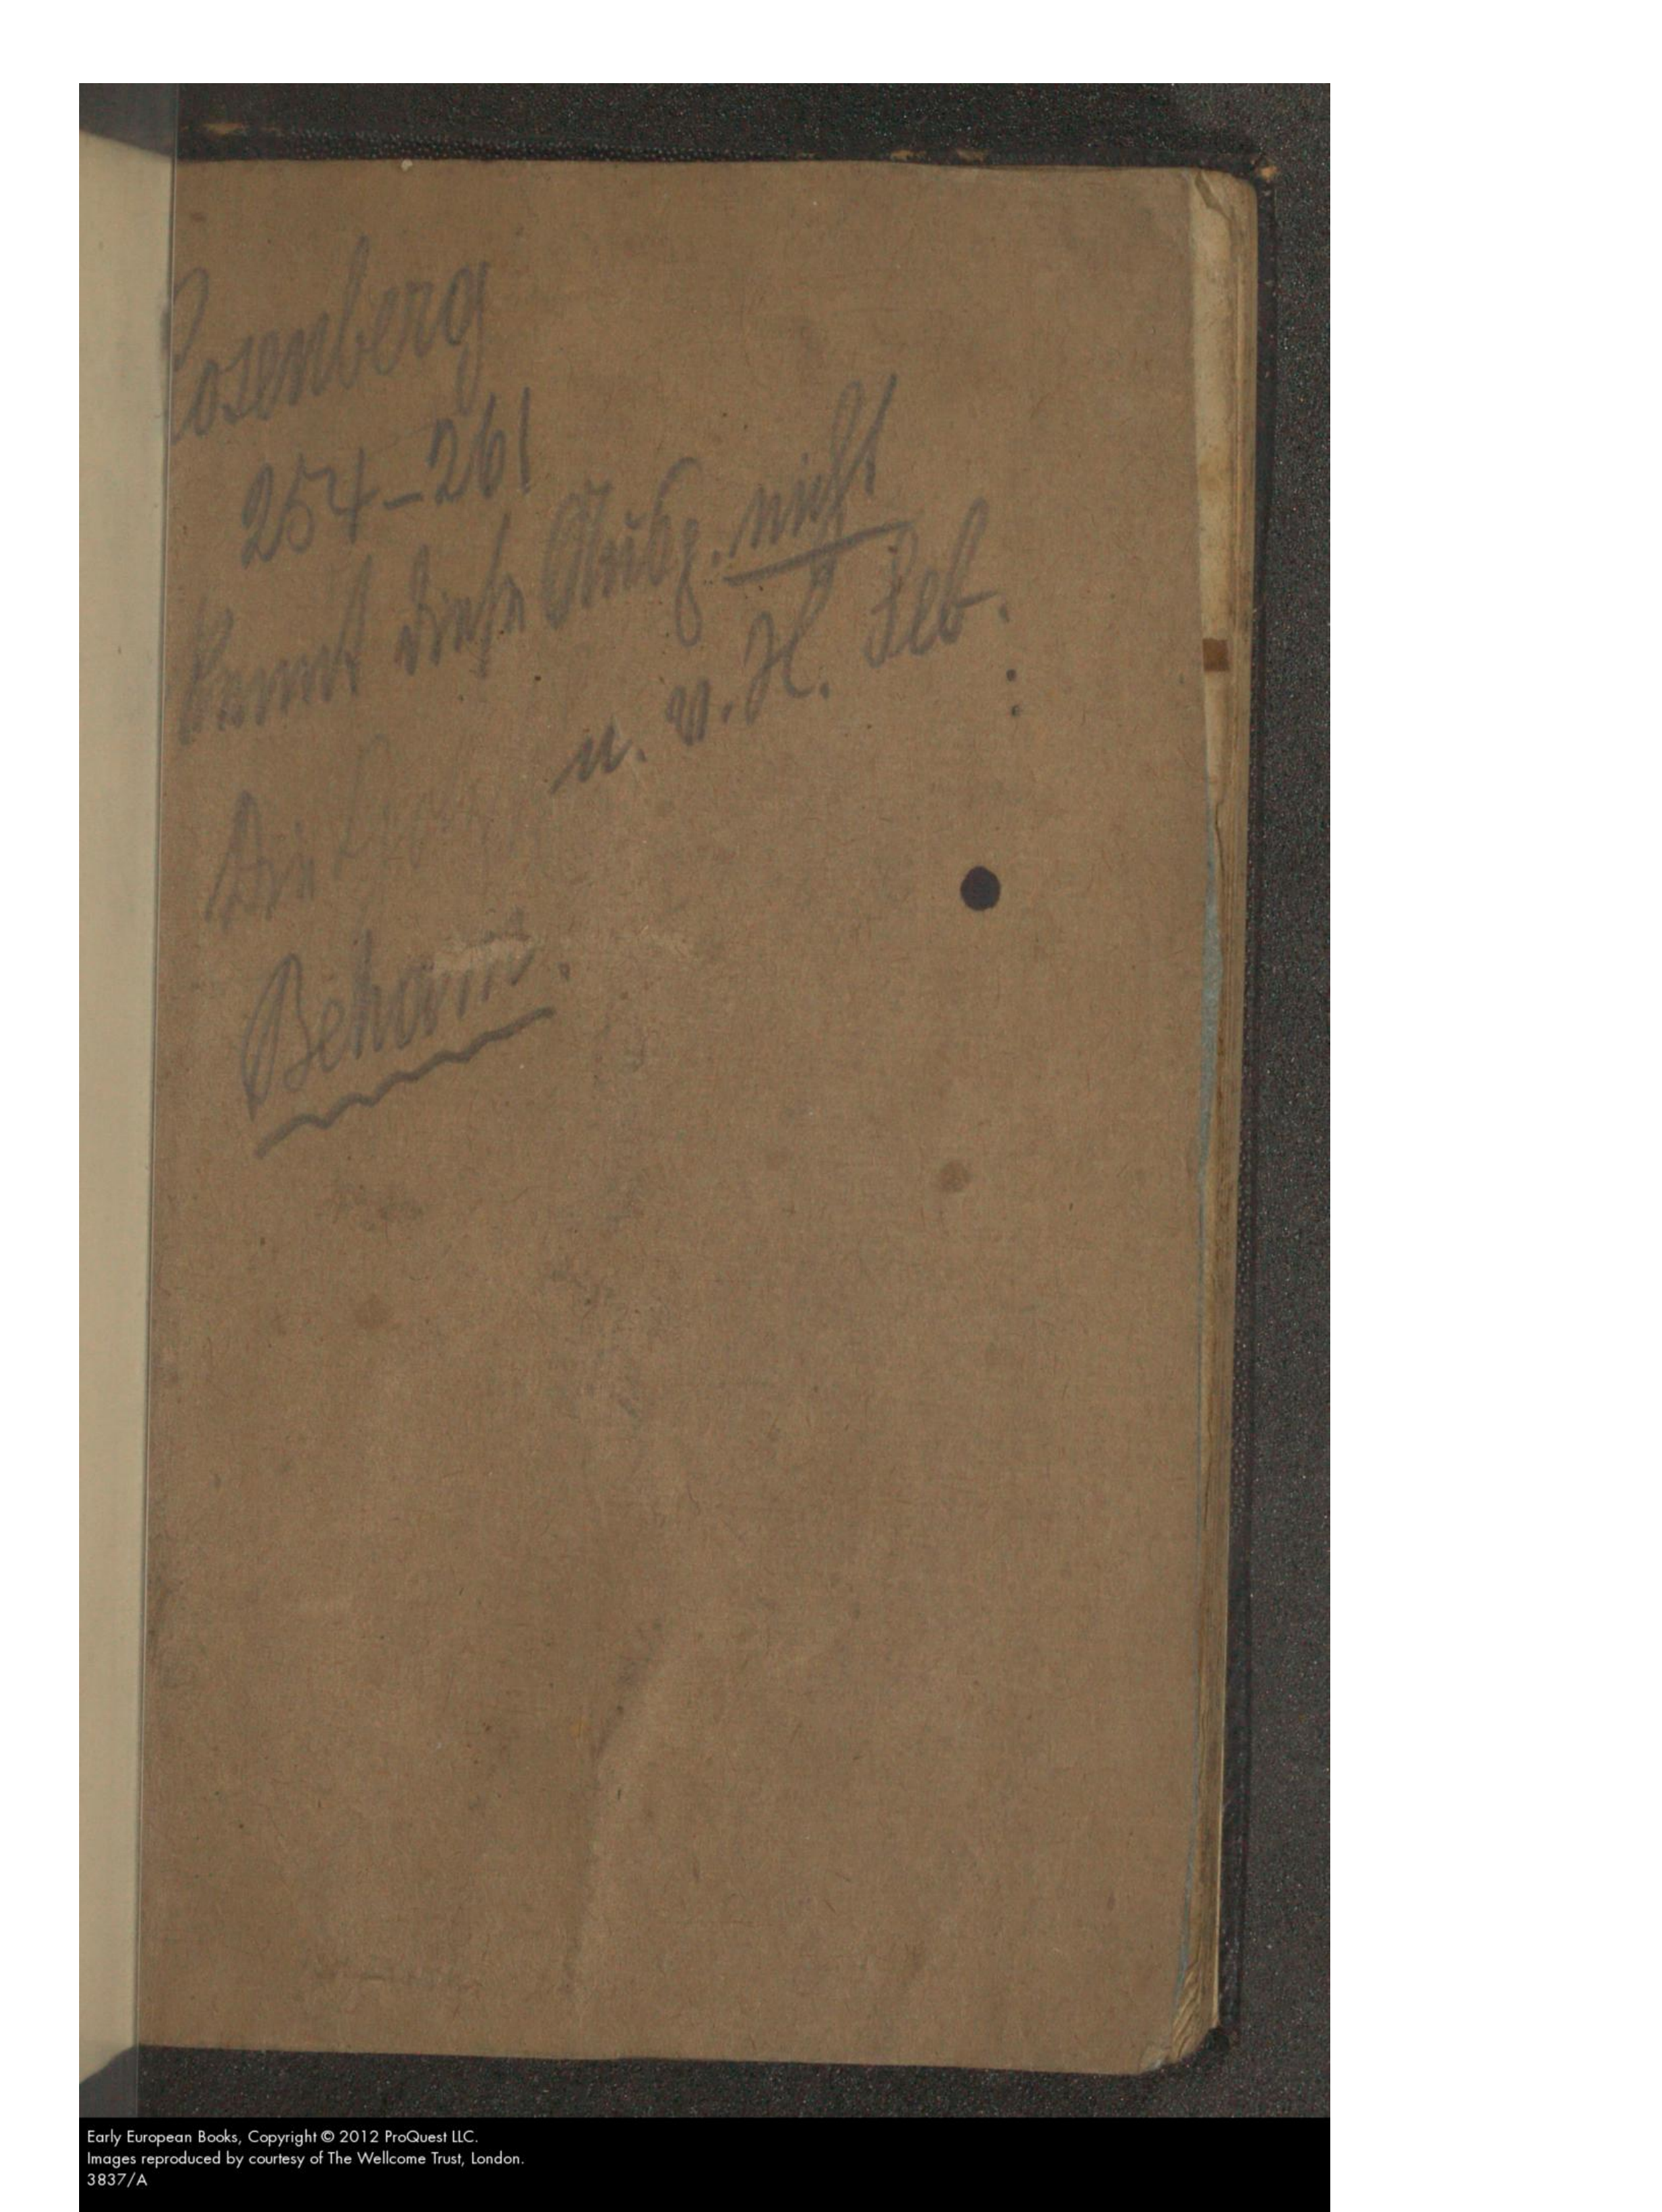 Rosenberg
254–261
kennt diese Ausg. nicht
u. v. H. Seb.
Die
Beham.
Early European Books, Copyright © 2012 ProQuest LLC.
Images reproduced by courtesy of The Wellcome Trust, London.
3837/A